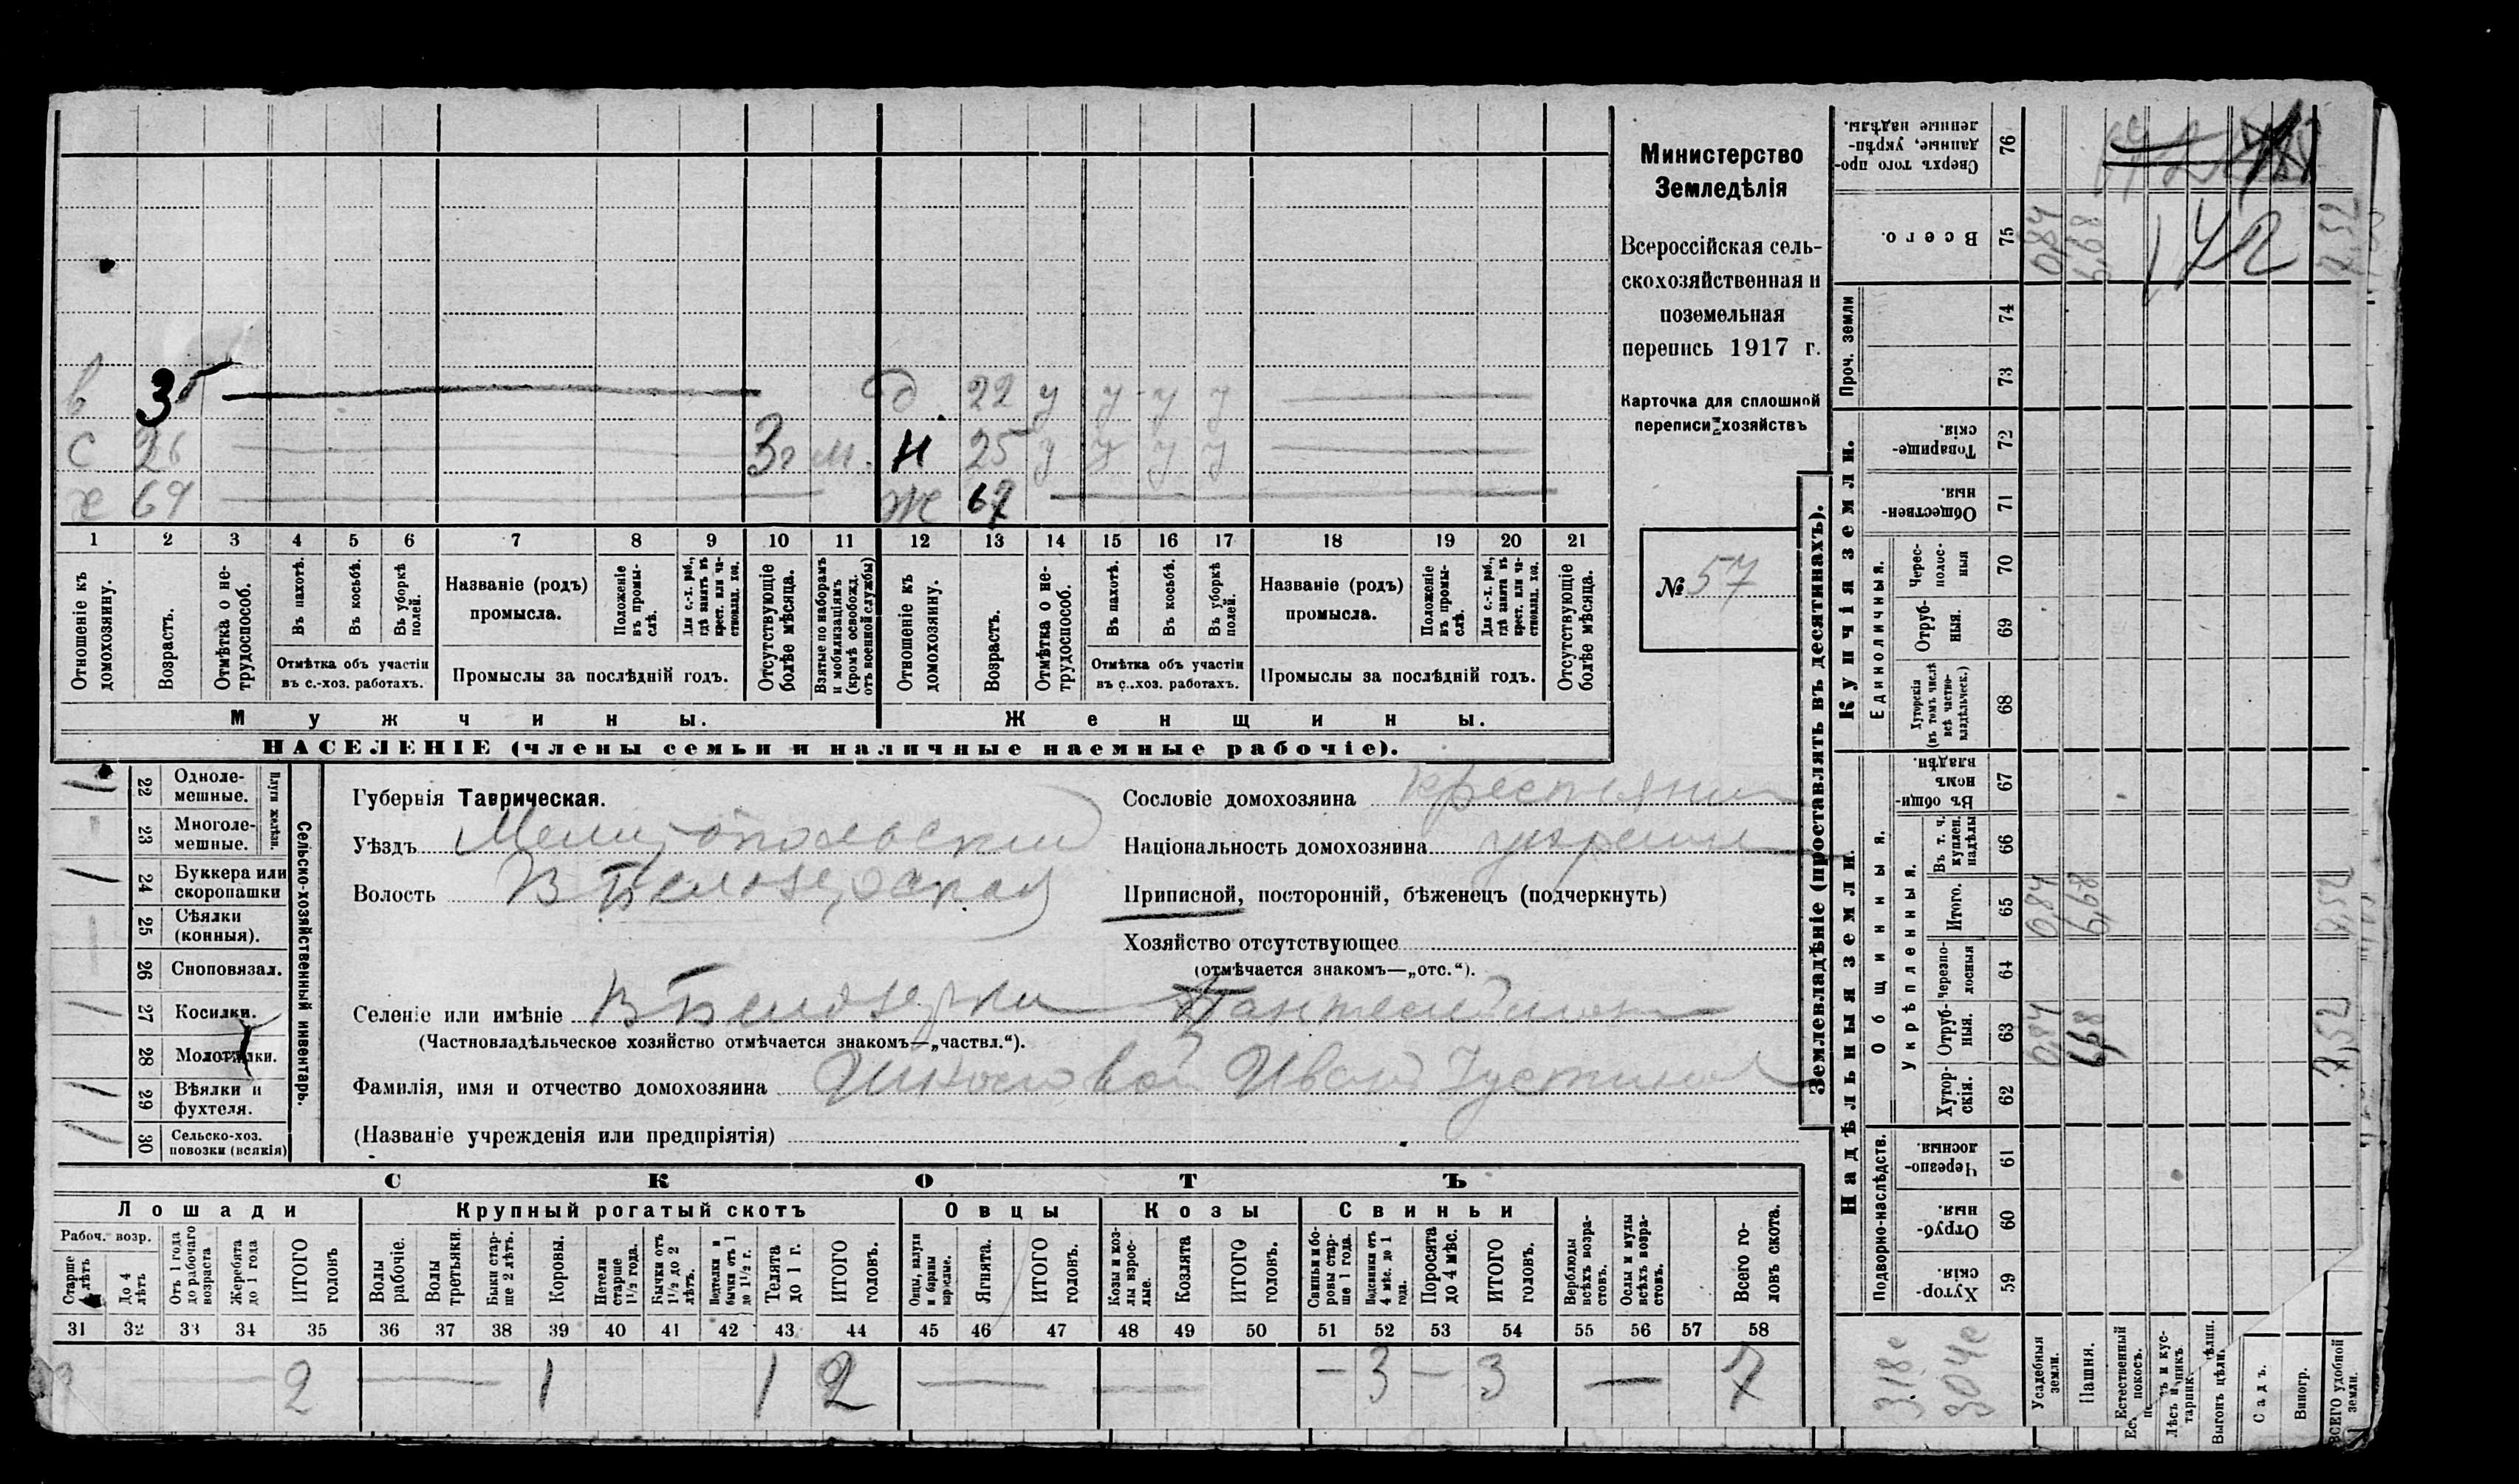 Министерство
Земледѣлія
Всероссійская сель-
скохозяйственная и
поземельная
перепись 1917 г.
Карточка для сплошной
переписи хозяйствъ
№ 57
в 35 22 у у у у
с 26 3 г м. н 25 у у у у
х 69 ж 67
1 2 3 4 5 6 7 8 9 10 11 12 13 14 15 16 17 18 19 20 21
Отношеніе къ домохозяину.
Возрастъ.
Отмѣтка о не-трудоспособ.
Въ пахотѣ.
Въ косьбѣ.
Въ уборкѣ полей.
Отмѣтка объ участіи
въ с.-хоз. работахъ.
Названіе (родъ)
промысла.
Положеніе въ промы-слѣ.
Для с.-х. раб., гдѣ занятъ въ крест. или ча-стновлад. хоз.
Промыслы за послѣдній годъ.
Отсутствующіе болѣе мѣсяца.
Взятые по наборамъ и мобилизаціямъ (кромѣ освобожд. отъ военной службы)
Отношеніе къ домохозяину.
Возрастъ.
Отмѣтка о не-трудоспособ.
Въ пахотѣ.
Въ косьбѣ.
Въ уборкѣ полей.
Отмѣтка объ участіи
въ с.-хоз. работахъ.
Названіе (родъ)
промысла.
Положеніе въ промы-слѣ.
Для с.-х. раб., гдѣ занята въ крест. или ча-стновлад. хоз.
Промыслы за послѣдній годъ.
Отсутствующіе болѣе мѣсяца.
Мужчины. Женщины.
НАСЕЛЕНІЕ (члены семьи и наличные наемные рабочіе).
22 Одноле-мешные.
23 Многоле-мешные.
Плуги желѣзн.
24 Буккера или скоропашки
25 Сѣялки (конныя).
26 Сноповязал.
27 Косилки.
28 Молотилки.
29 Вѣялки и фухтеля.
30 Сельско-хоз. повозки (всякія)
Сельско-хозяйственный инвентарь.
Губернія Таврическая.
Уѣздъ Мелитопольский
Волость В Белозерская
Сословіе домохозяина крестьянин
Національность домохозяина украин
Приписной, посторонній, бѣженецъ (подчеркнуть)
Хозяйство отсутствующее
(отмѣчается знакомъ—„отс.“).
Селеніе или имѣніе В Белозерка
(Частновладѣльческое хозяйство отмѣчается знакомъ—„частвл.“).
Фамилія, имя и отчество домохозяина Иван Густинов
(Названіе учрежденія или предпріятія)
СКОТЪ
Лошади Крупный рогатый скотъ Овцы Козы Свиньи
Рабоч. возр.
Старше 4 лѣтъ
До 4 лѣтъ
Отъ 1 года до рабочаго возраста
Жеребята до 1 года
ИТОГО головъ
Волы рабочіе.
Волы третьяки.
Быки стар-ше 2 лѣтъ.
Коровы.
Нетели старше 1½ года.
Бычки отъ 1½ до 2 лѣтъ.
Подтелки и бычки отъ 1 до 1½ г.
Телята до 1 г.
ИТОГО головъ.
Овцы, валухи и бараны взрослые.
Ягнята.
ИТОГО головъ.
Козы и коз-лы взрос-лые.
Козлята
ИТОГО головъ.
Свиньи и бо-ровы стар-ше 1 года.
Подсвинки отъ 4 мѣс. до 1 года.
Поросята до 4 мѣс.
ИТОГО головъ.
Верблюды всѣхъ возра-стовъ.
Ослы и мулы всѣхъ возра-стовъ.
Всего го-ловъ скота.
31 32 33 34 35 36 37 38 39 40 41 42 43 44 45 46 47 48 49 50 51 52 53 54 55 56 57 58
2 1 1 2 — — — 3 — 3 — 7
Землевладѣніе (проставлять въ десятинахъ).
76 Сверхъ того про-данные, укрѣп-ленные надѣлы.
75 Всего. 0,84 6,98 172 7,82
Проч. земли
74
73
Купчія земли.
72 Товарище-скія.
71 Обществен-ныя.
Единоличныя.
70 Черес-полос-ныя
69 Отруб-ныя.
68 Хуторскія (въ томъ числѣ всѣ частно-владѣльческ.)
Надѣльныя земли.
Общинныя.
67 Въ общи-номъ владѣн.
Укрѣпленныя.
66 Въ т. ч. куплен. надѣлы
65 Итого. 0,84 6,98 7,82
64 Черезпо-лосныя
63 Отруб-ныя. 0,84 6,98 7,82
62 Хутор-скія.
Подворно-наслѣдств.
61 Черезпо-лосныя.
60 Отруб-ныя.
59 Хутор-скія.
318с
304с
Усадебныя земли.
Пашня.
Естественный покосъ.
Выгонъ
Садъ.
Виногр.
ВСЕГО удобной земли.